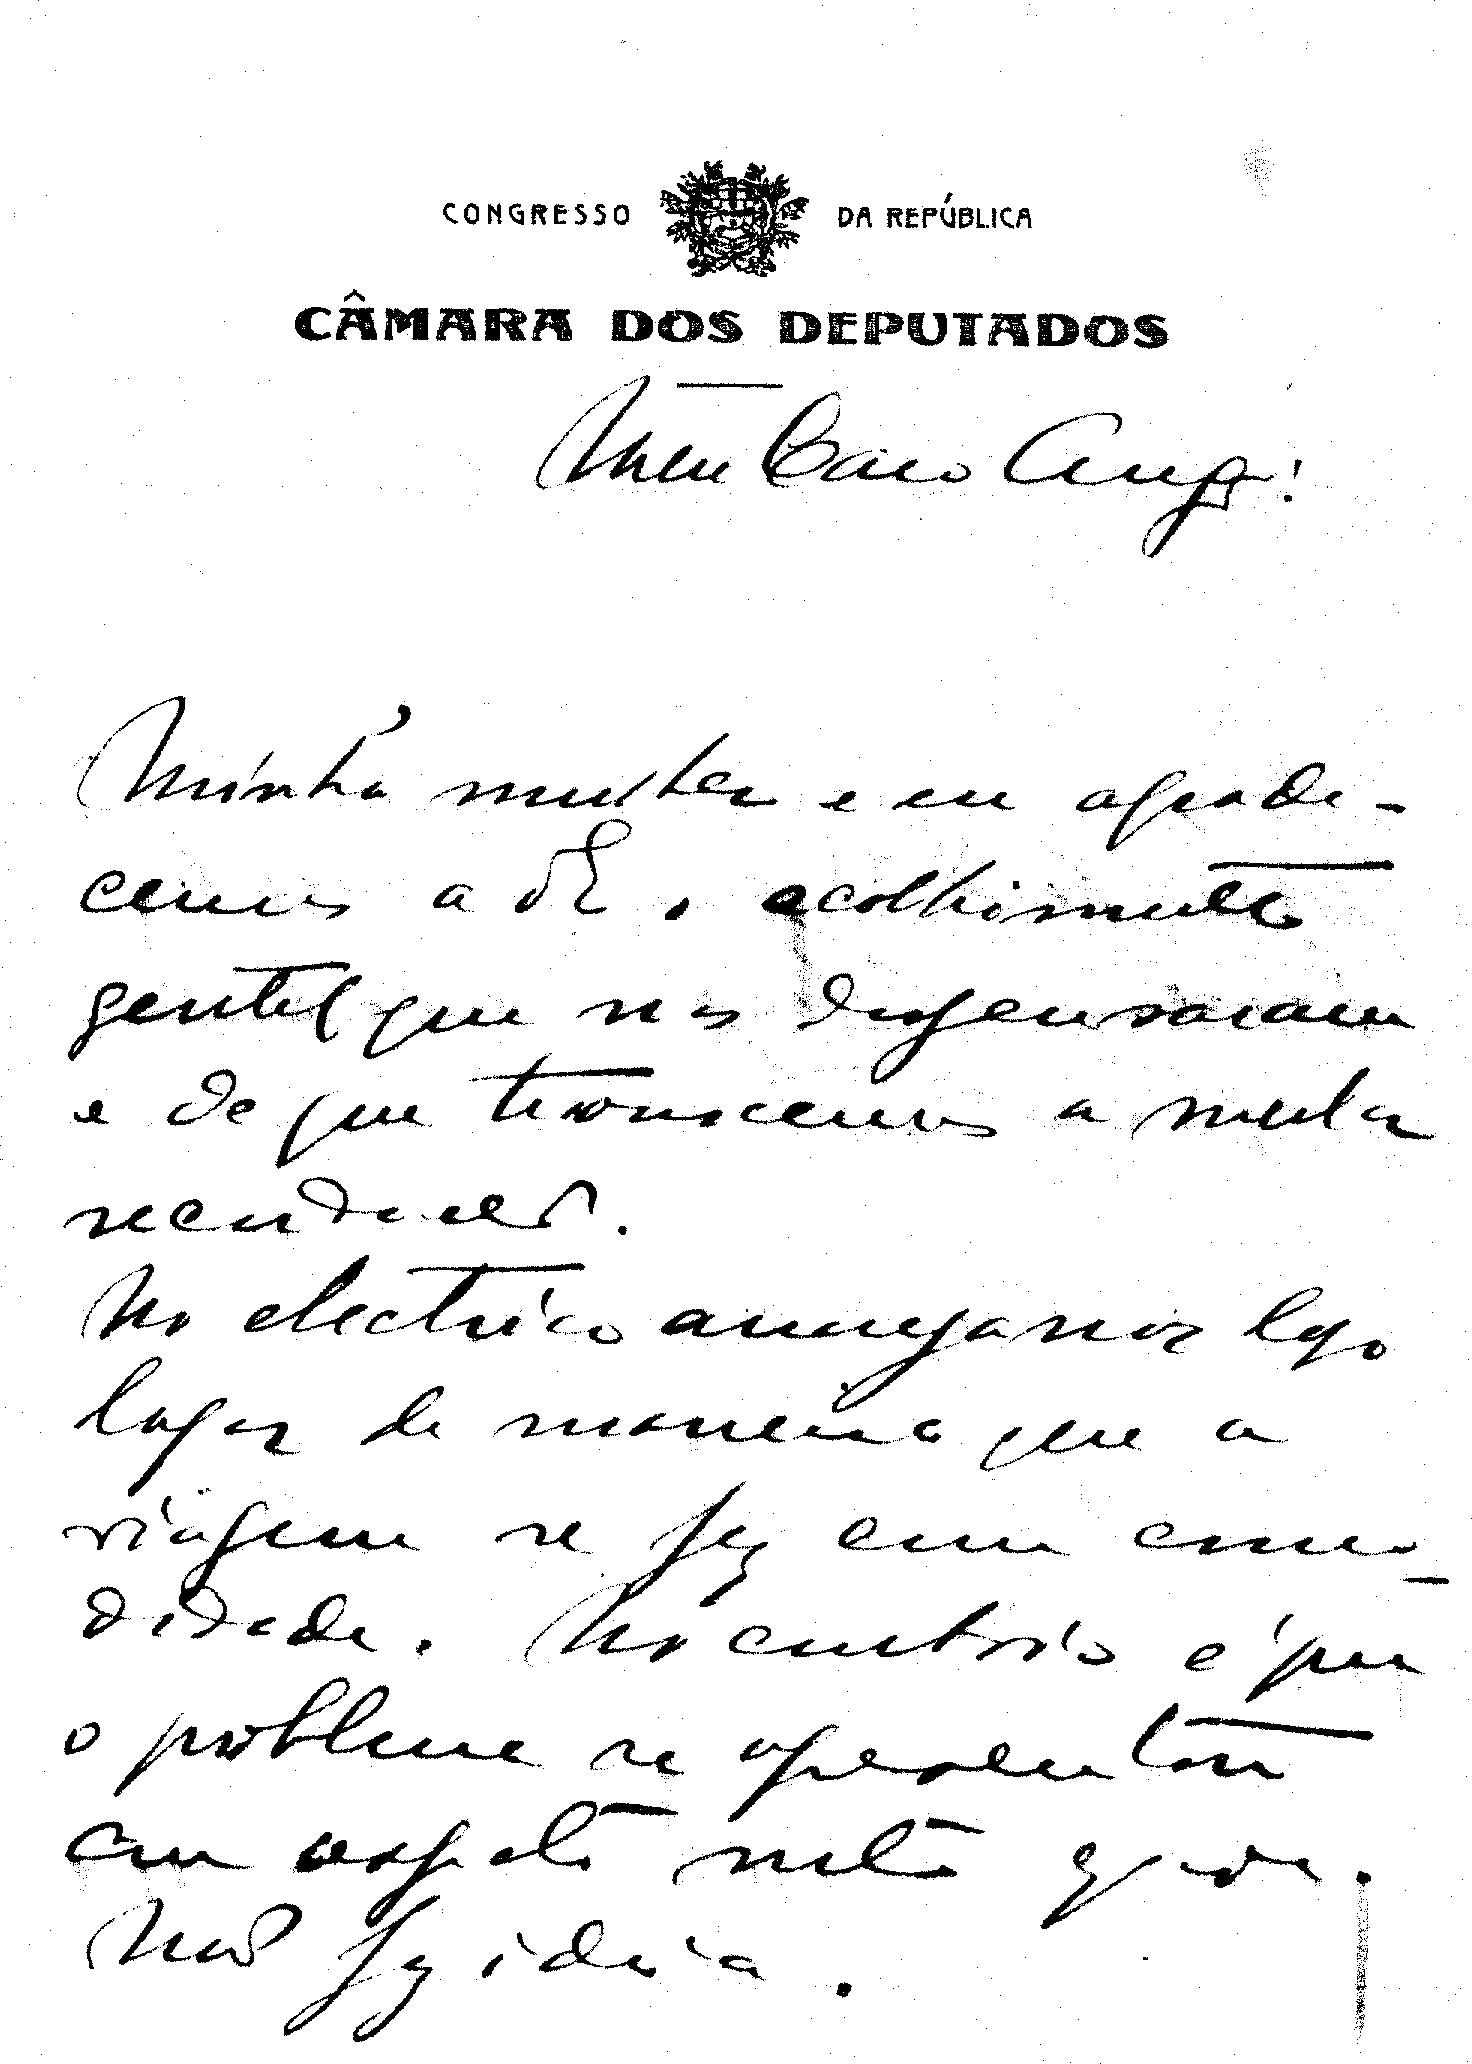 CONGRESSO DA REPÚBLICA
CÂMARA DOS DEPUTADOS
Meu Caro Amgº:
Minha mulher e eu agrade-
cemos a o acolhimento
gentil que nos dispensaram
e de que trouxemos a melhor
recordação.
No electrico arranjamos logo
logar de maneira que a
viagem se fez com como-
didade. No comboio é que
o problema se apresentou
com aspecto muito grave.
Não faz ideia.